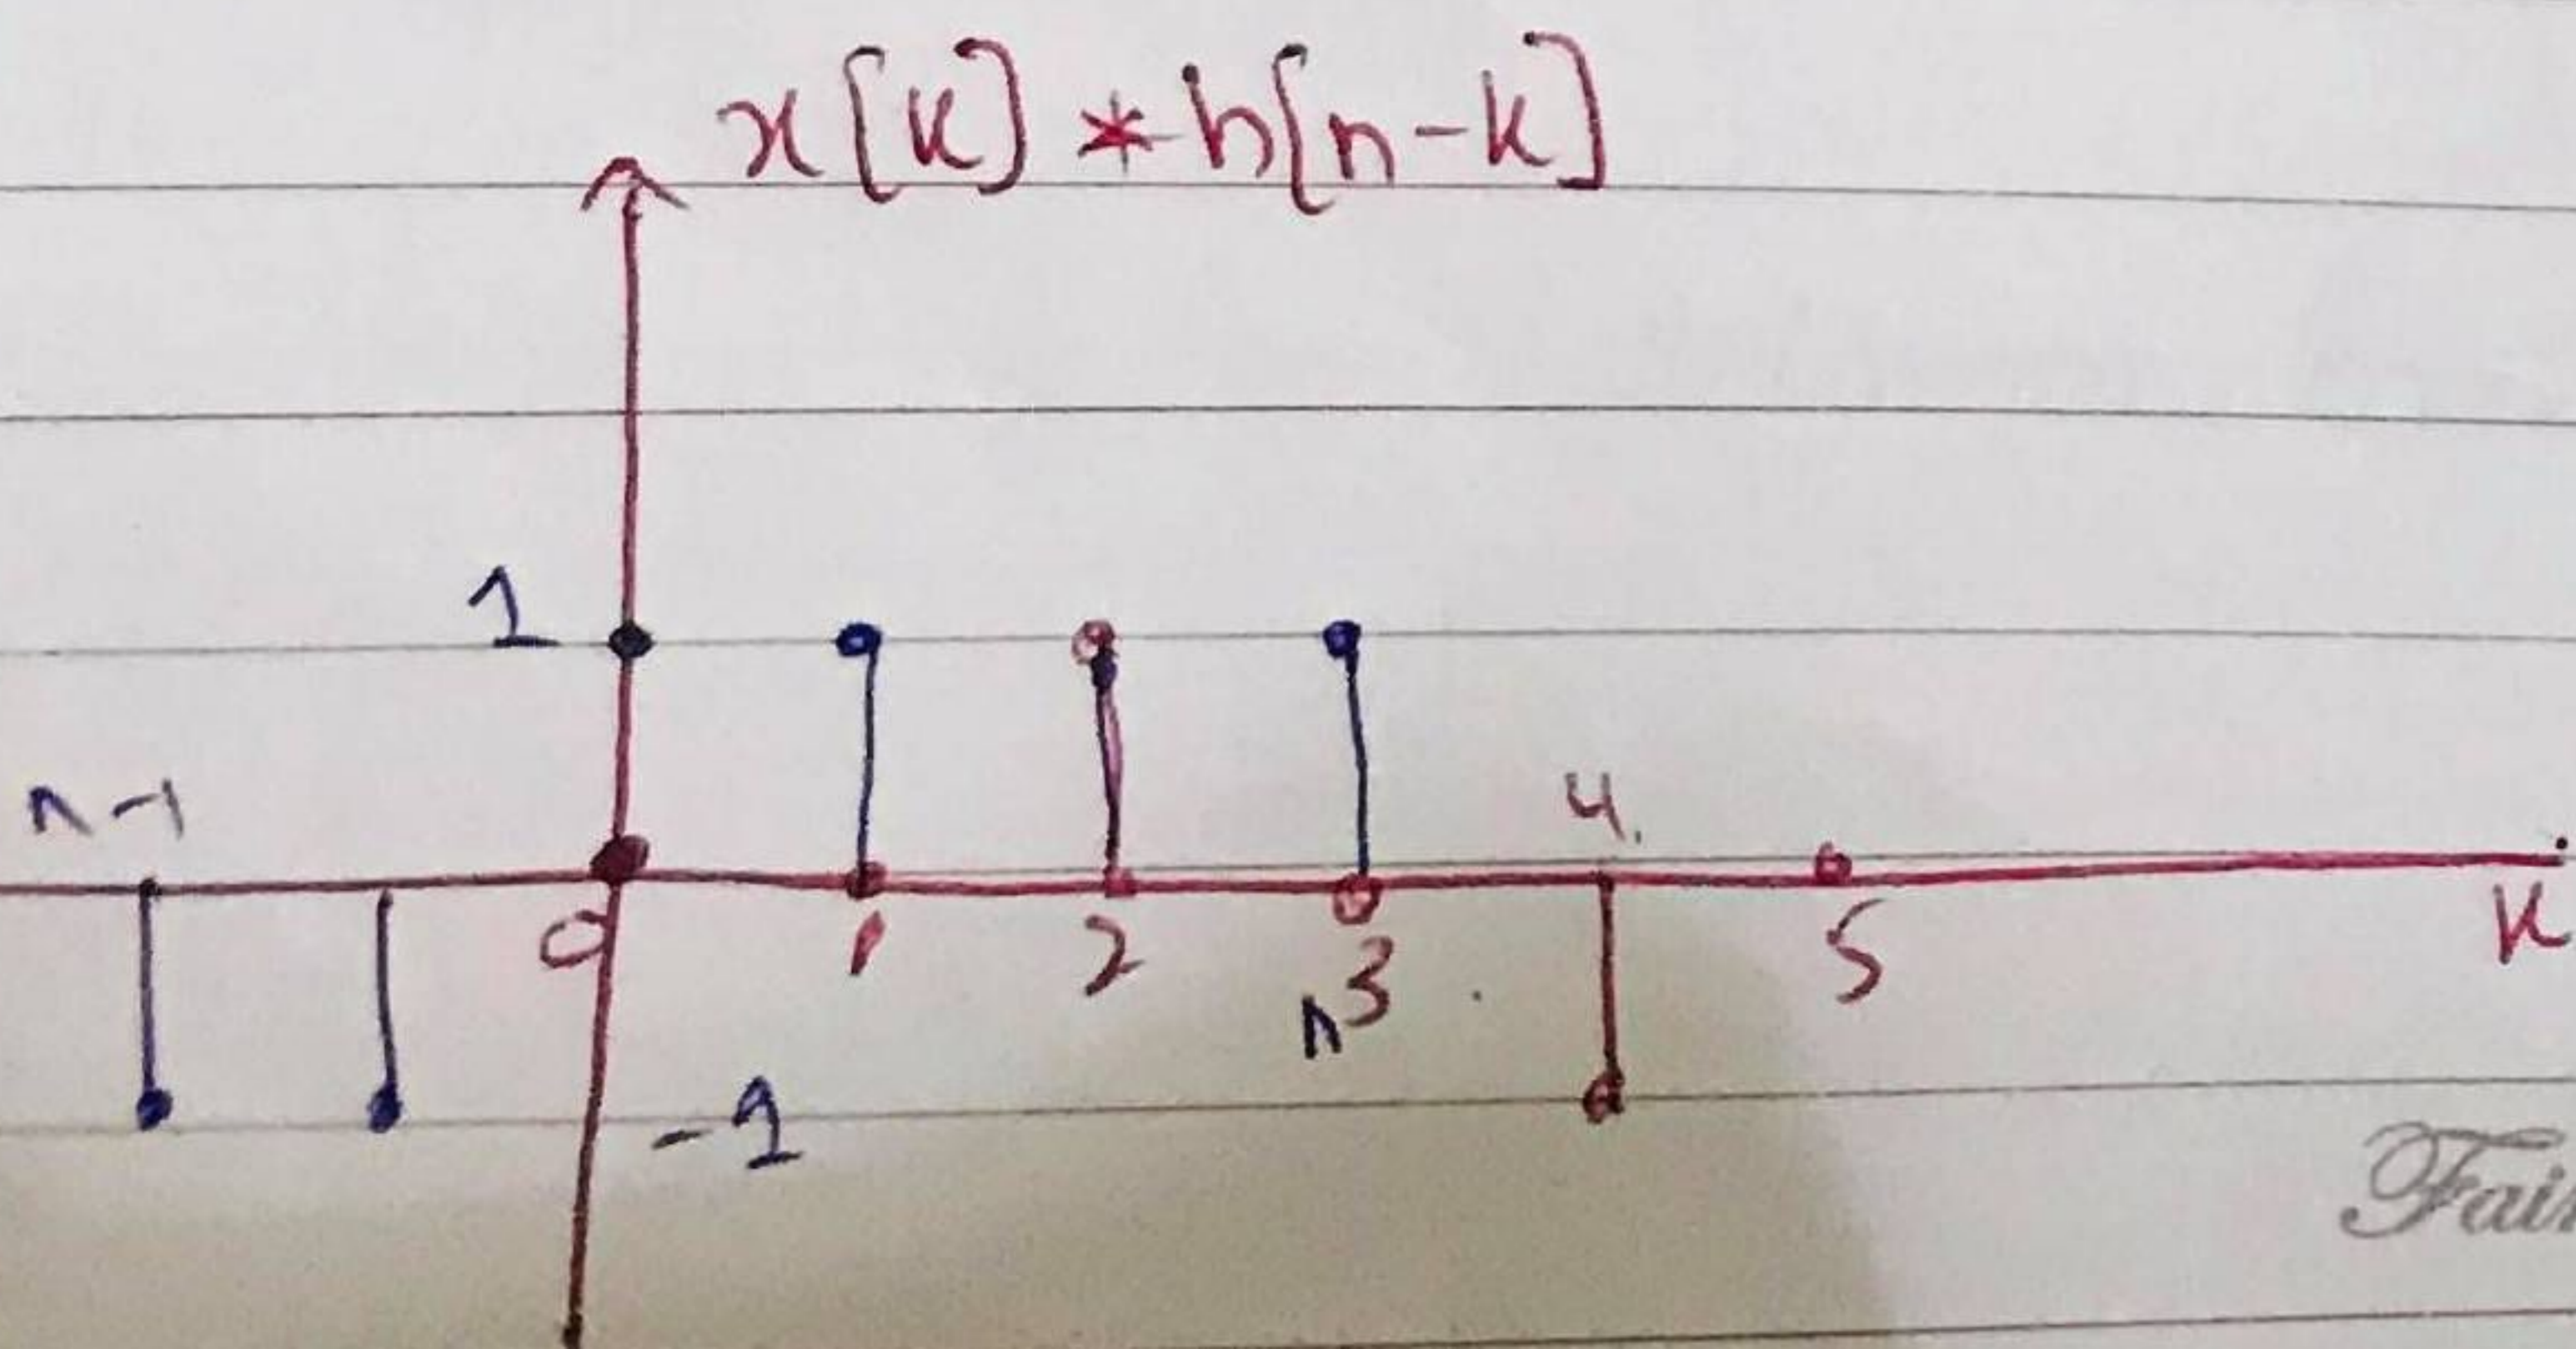 x[k] * h[n-k]
1
n-1
4.
0 1 2 3 5 k
n
-1
Fair